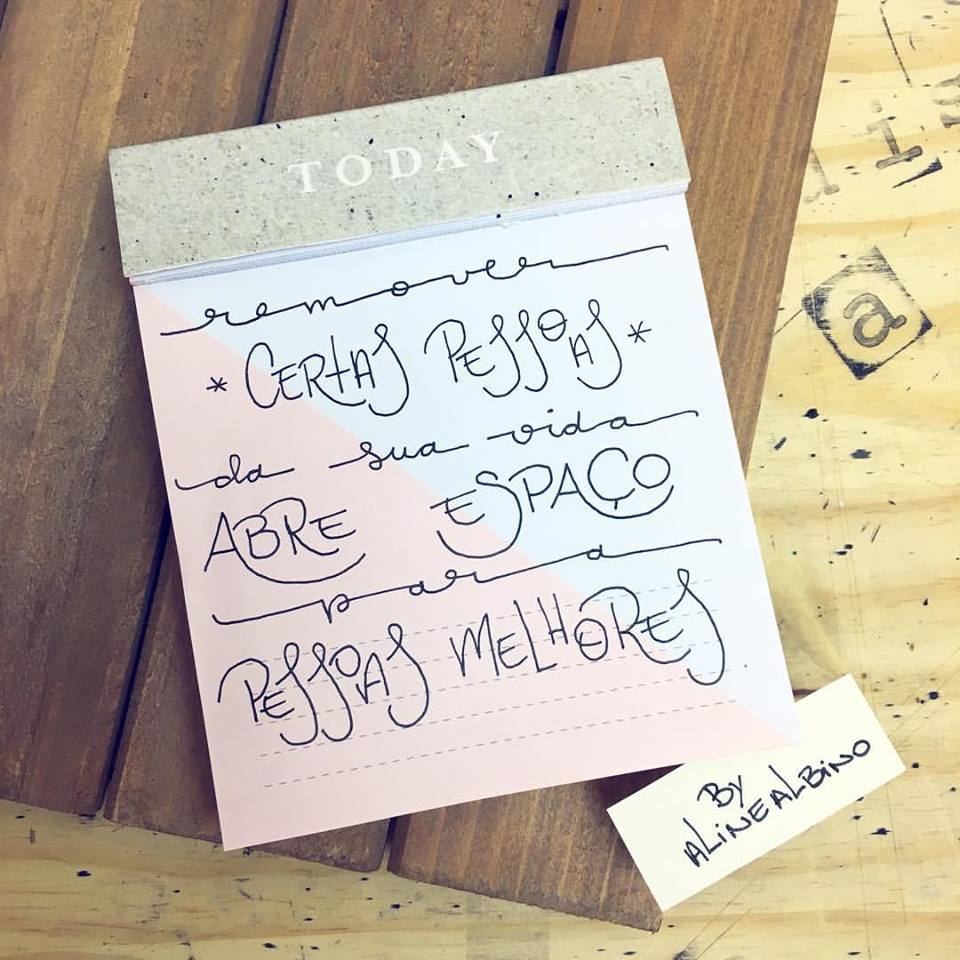 TODAY
remover
* CERTAS PESSOAS *
da sua vida
ABRE ESPAÇO
para
PESSOAS MELHORES.
BY
ALINEALBINO
a